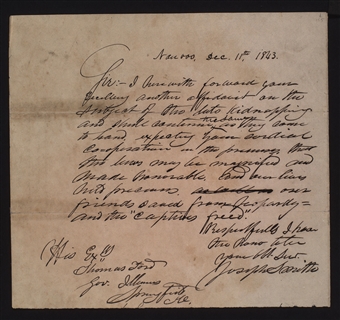 Nauvoo, Dec. 11th 1843.
Sir:- I herewith forward your
Excellency another affidavit on the
subject of the late kidnapping
and shall continue to do so as they come
to hand, expecting your cordial
Cooperation in the premises, that
the laws may be magnified and
made honorable, and our lives
held precious, our
friends saved from jeopardy=
and the "captives freed".
Respectfully I have
the honor to be
your Ob. Svt.
Joseph Smith
His Excy
Thomas Ford
Gov. Illinois
Springfield
Ill.